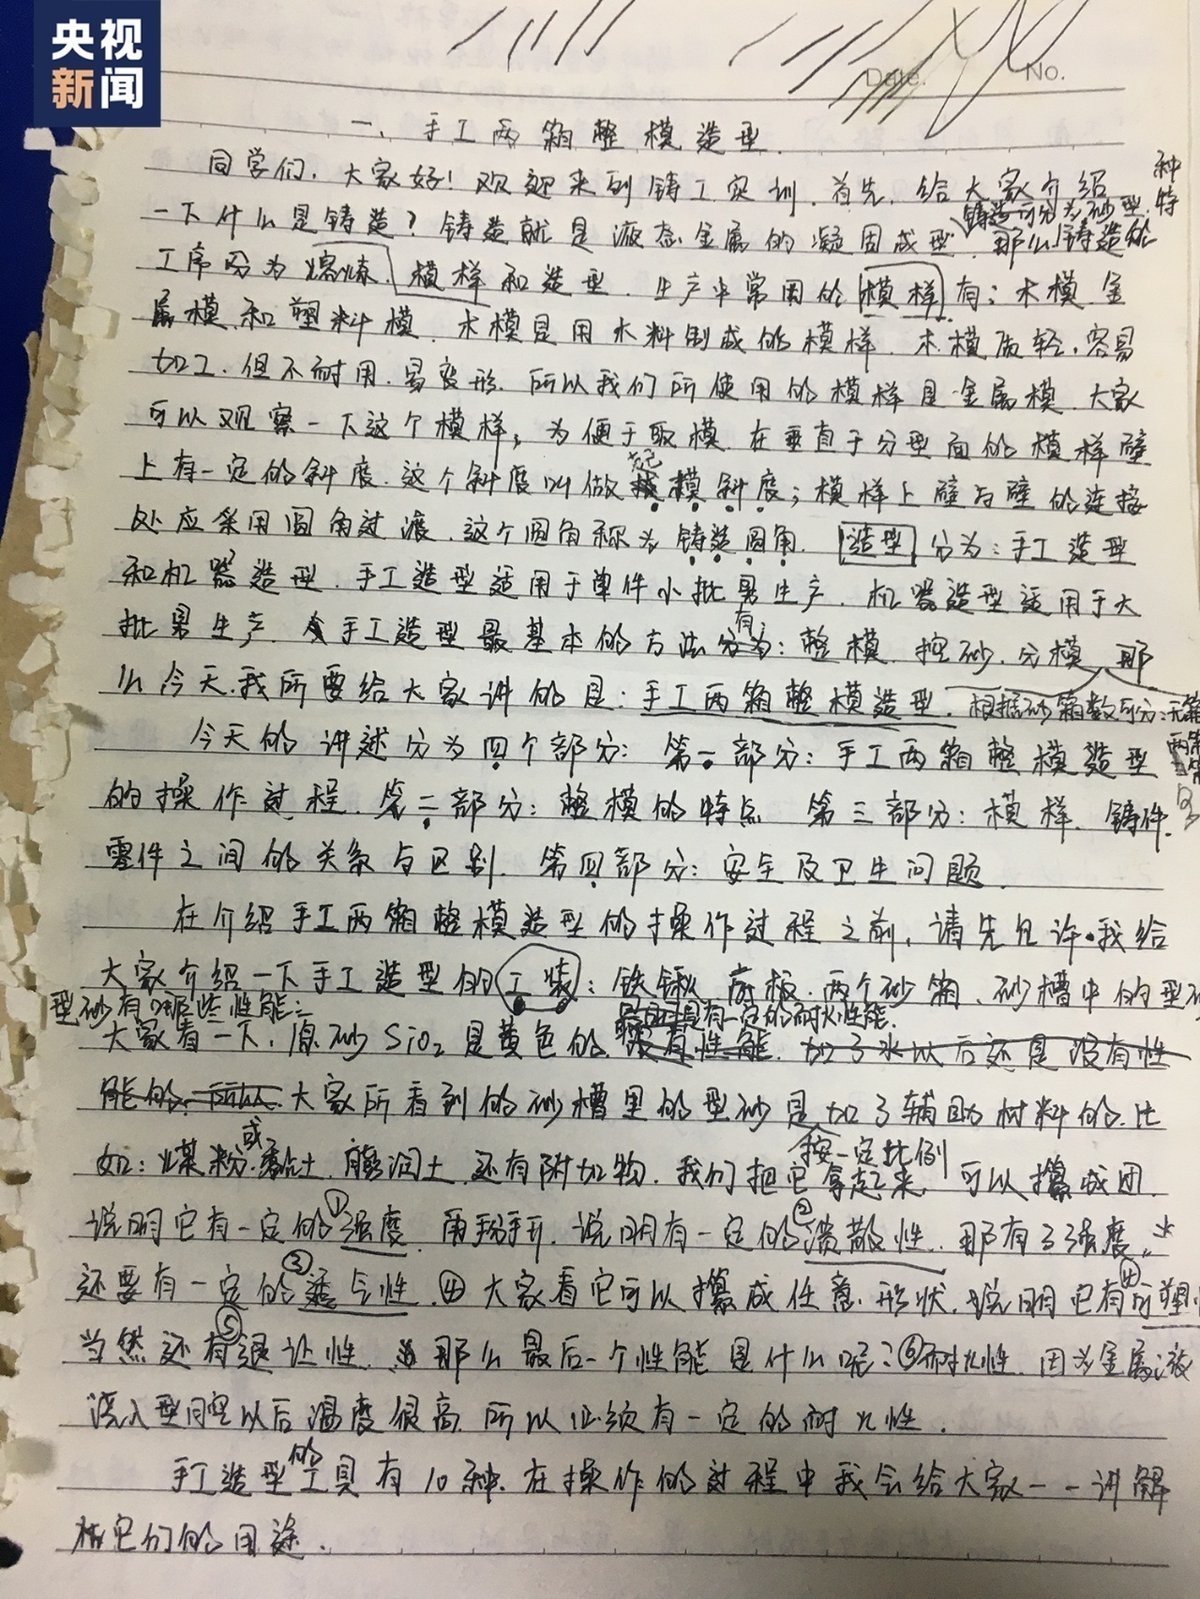 央视
新闻
Date.
No.
一、手工两箱整模造型.
同学们,大家好!欢迎来到铸工实训.首先,给大家介绍
铸造可分为砂型.特种
一下什么是铸造?铸造就是液态金属的凝固成型,那么铸造的
工序分为熔炼、模样和造型.生产中常用的模样有:木模金
属模和塑料模.木模是用木料制成的模样.木模质轻,容易
加工.但不耐用.易变形.所以我们所使用的模样是金属模.大家
可以观察一下这个模样,为便于取模.在垂直于分型面的模样壁
上有一定的斜度.这个斜度叫做起模斜度;模样上壁与壁的连接
处应采用圆角过渡.这个圆角称为铸造圆角.造型分为:手工造型
和机器造型.手工造型适用于单件小批量生产.机器造型适用于大
批量生产.手工造型最基本的方法有:整模.挖砂.分模,那
么今天.我所要给大家讲的是:手工两箱整模造型.根据砂箱数可分:无箱
两箱
今天的讲述分为四个部分:第一部分:手工两箱整模造型
的操作过程.第二部分:整模的特点 第三部分:模样.铸件.
零件之间的关系与区别.第四部分:安全及卫生问题.
在介绍手工两箱整模造型的操作过程之前,请先允许我给
大家介绍一下手工造型的工装:铁锹.底板.两个砂箱、砂槽中的型砂
型砂有哪些性能:
具有一定的耐火性能.
大家看一下,原砂SiO₂是黄色的.没有性能.加了水以后还是没有性
能的.所以大家所看到的砂槽里的型砂是加了辅助材料的.比
如:煤粉.或黏土.膨润土.还有附加物.按一定比例 我们把它拿起来 可以攥成团.
说明它有一定的①强度.用手掰开.说明有一定的②溃散性.那有了强度.
还要有一定的③透气性.④大家看它可以攥成任意形状.说明它有④可塑性
当然还有⑤退让性.那么最后一个性能是什么呢?⑥耐火性.因为金属液
浇入型腔以后温度很高.所以必须有一定的耐火性.
手工造型的工具有10种.在操作的过程中我会给大家一一讲解
它们的用途.